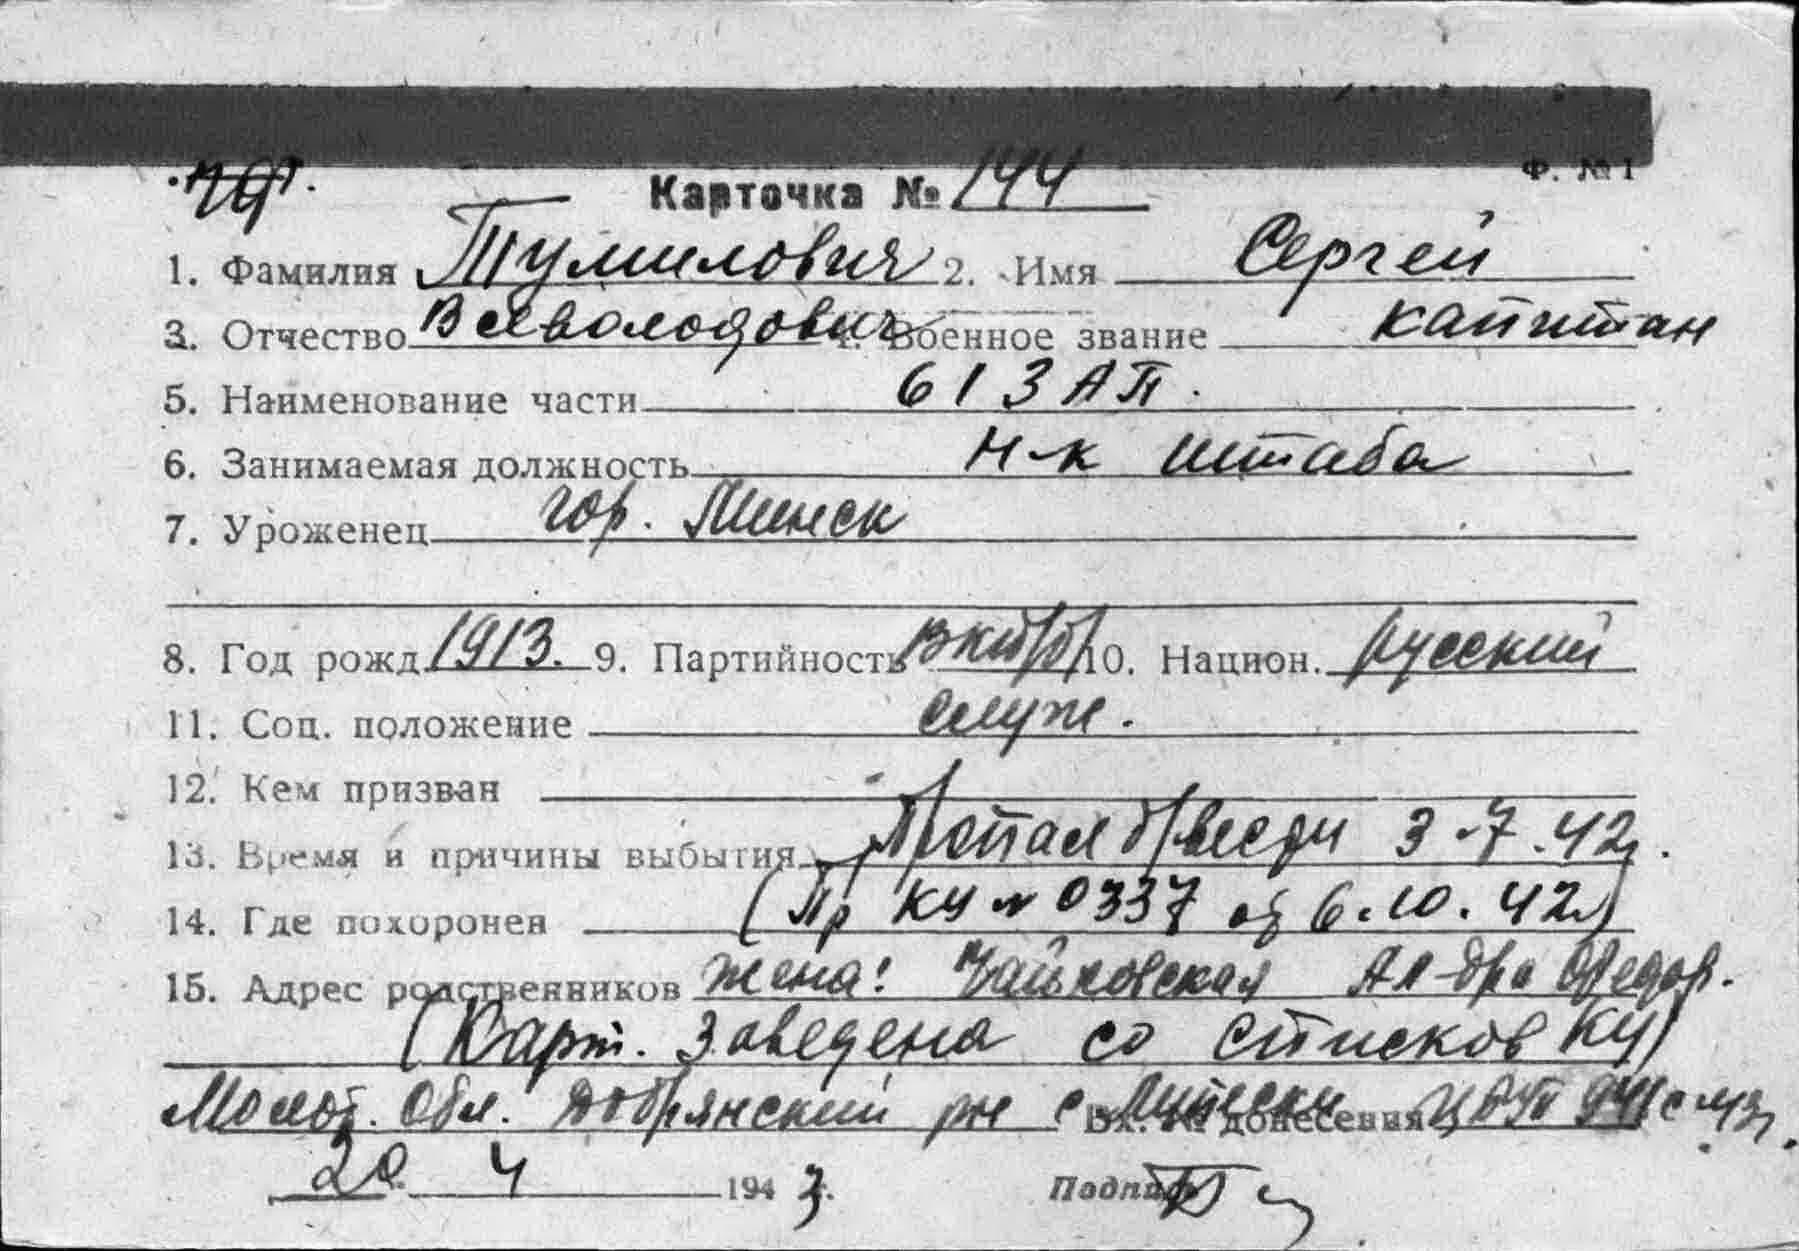 Ф. № 1
Карточка № 144
1. Фамилия Тумилович 2. Имя Сергей
3. Отчество Всеволодович 4. Военное звание капитан
5. Наименование части 613 АП.
6. Занимаемая должность н-к штаба
7. Уроженец гор. Минск
8. Год рожд. 1913. 9. Партийность ВКП/б/ 10. Национ. русский
11. Соц. положение служ.
12. Кем призван
13. Время и причины выбытия Пропал б/вести 3.7.42г.
14. Где похоронен (Пр КУ № 0337 от 6.10.42г)
15. Адрес родственников жена: Чайковская Ал-дра Федор.
(Карт. заведена со списков КУ)
Молот. обл. Добрянский р-н с Вх. № донесения
20. 4 1943г. Подпись